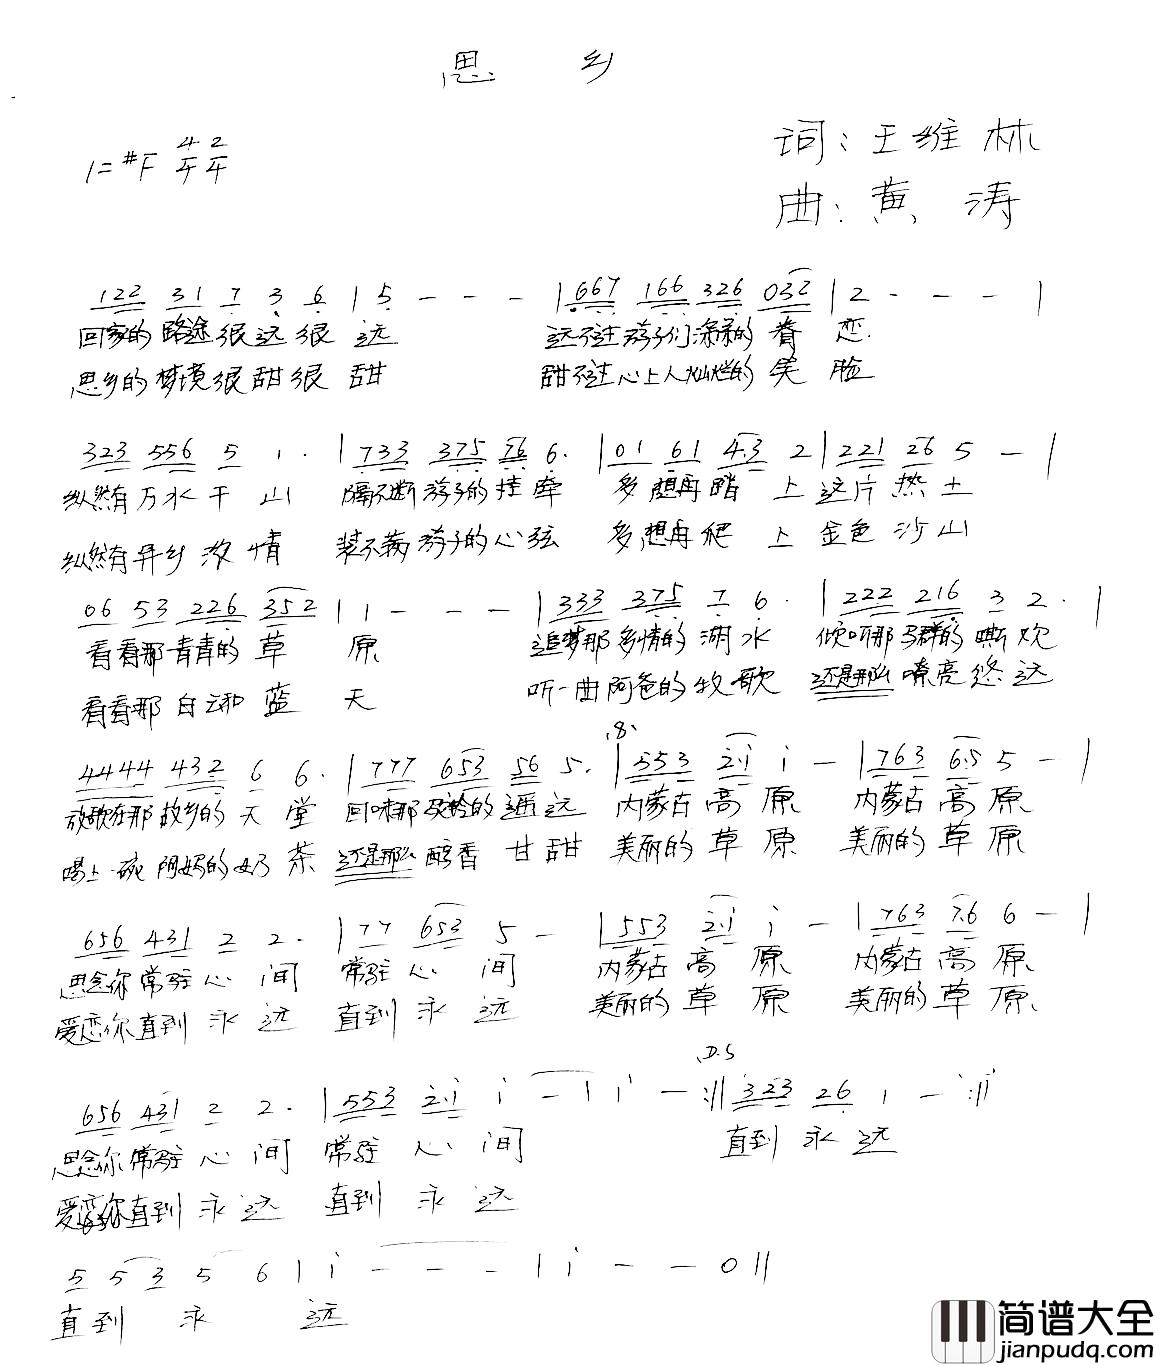 思 乡
1=#F 4/4 2/4
词:王维林
曲:黄涛
122 31 7 3 6 | 5 - - - | 667 166 326 032 | 2 - - - |
回家的 路途 很 远 很 远 远不过 游子们 深深的 眷 恋
思乡的 梦境 很 甜 很 甜 甜不过 心上人 灿烂的 笑 脸
323 556 5 1 · | 733 375 76 6 · | 01 61 4·3 2 | 221 26 5 - |
纵然有 万水 千 山 隔不断 游子的 挂 牵 多 想再 踏 上 这片 热 土
纵然有 异乡 浓 情 装不满 游子的 心 弦 多 想再 爬 上 金色 沙 山
06 53 226 352 | 1 - - - | 333 375 7 6 · | 222 216 3 2 · |
看 看那 青青的 草 原 追梦那 多情的 湖 水 倾听那 马群的 嘶 欢
看 看那 白云和 蓝 天 听一曲 阿爸的 牧 歌 还是那么 嘹亮 悠 远
4444 432 6 6 · | 777 653 56 5 · | 553 2·1 1 - | 763 6·5 5 - |
放歌在那 故乡的 天 堂 回味那 驼铃的 遥 远 内蒙古 高 原 内蒙古 高 原
喝上一碗 阿妈的 奶 茶 还是那么 醇香 甘 甜 美丽的 草 原 美丽的 草 原
656 431 2 2 · | 77 653 5 - | 553 2·1 1 - | 763 7·6 6 - |
思念你 常驻 心 间 常驻 心 间 内蒙古 高 原 内蒙古 高 原
爱恋你 直到 永 远 直到 永 远 美丽的 草 原 美丽的 草 原
D.S
656 431 2 2 · | 553 2·1 1 - | 1 - :|| 323 26 1 - :||
思念你 常驻 心 间 常驻 心 间 直到 永 远
爱恋你 直到 永 远 直到 永 远
5 5 3 5 6 | 1 - - - | 1 - - 0 ||
直到 永 远
简谱大全
jianpudq.com